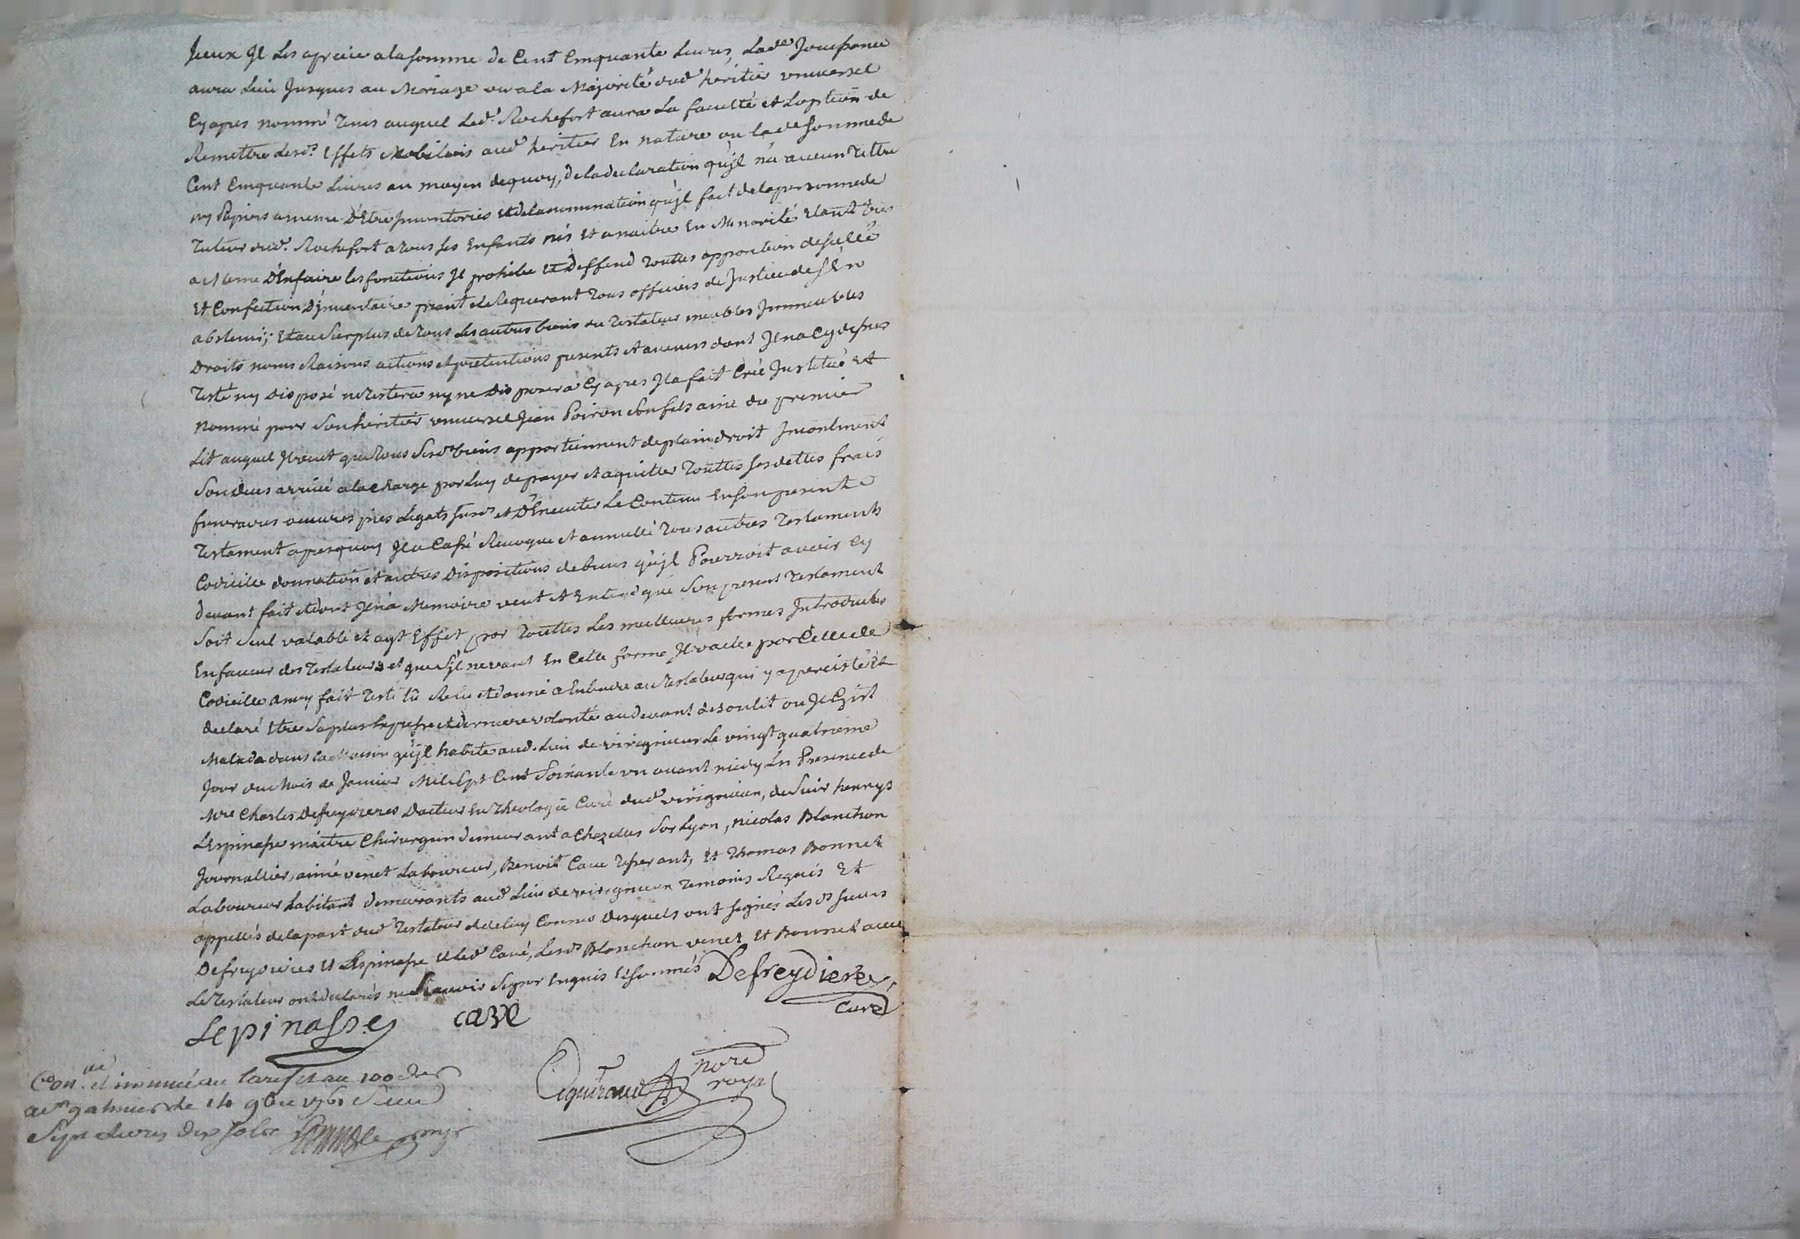 Iceux Il les aprecie a la somme de Cent Cinquante Livres, Lade Jouissance
aura Lieu Jusques au Mariage ou a la Majorité dud. heritier universel
Cy apres nommé Tems auquel Led. Rochefort aura La faculté et Loption de
Remettre Lesds. Effets Mobiliers aud. heritier En nature ou lade somme de
Cent Cinquante Livres au moyen dequoy, de la declaration qu'jl n'a aucun tittre
ny Papiers a meme D'Etre Jnventoriés et de la nomination qu'jl fait de la personne de
Tuteur dud. Rochefort a tous ses Enfants nés et a naitre En Minorité Etant très
a Meme D'En faire les fonctions Il prohibe et Deffend toutes apposition de scellé
Et Confection D'jnventaire priant et Requerant Tous officiers de Justice de s'En
abstenir; Et au Surplus de tous Les autres biens du Testateur meubles Immeubles
Droits noms Raisons actions et pretentions presents et avenirs dont Il n'a Cy dessus
Testé ny disposé ne testera ny ne disposera Cy apres Il a fait Créé Institué et
Nommé pour Son heritier universel Jean Poiron son fils ainé du premier
Lit auquel Il veut que tous Sesds. biens appartiennent de plain droit Incontinent
Son deces arrivé a la charge par Luy de payer et aquitter Touttes ses dettes frais
funeraires oeuvres pies Legats susds. et D'Executer Le Contenu En son present
Testament apres quoy Il a Cassé Revoqué et annullé Tous autres Testaments
Codicille donnation et autres dispositions de biens qu'jl Pourroit avoir Cy
devant fait et dont Il n'a Memoire veut et Entend que Son present Testament
Soit Seul valable et ayt Effet par Touttes Les meilleures formes Introduites
En faveur des Testateurs et que s'jl ne vaut En Cette forme Il vaille par Celle de
Codicille ainsy fait Testé lû Relu et donné a Entendre au Testateur qui y a percisté et
declaré Etre Sa plus Expresse et derniere volonté au devant de son lit ou Il Gist
Malade dans la Maison qu'jl habite aud. Lieu de virignieux Le vingt quatrieme
Jour du Mois de Janvier Mil Sept Cent Soixante un avant midy En Presence de
Mre Charles Defreydieres Docteur En Theologie Curé dud. virignieux, de Sieur henrys
LEspinasse maitre Chirurgien demeurant a Chazelles Sur Lyon, nicolas Blanchon
Journallier, aimé venet Laboureur, Benoit Cave Tisserant, Et Thomas Bonnet
Laboureur habitant demeurants aud. Lieu de virignieux temoins Requis Et
appellés de la part dud. Testateur et de luy Connus desquels ont signés Lesds. Sieurs
Defreydieres Et LEspinasse et led. Cavé, Lesds. Blanchon venet Et Bonnet avec
Le Testateur ont declarés ne Scavoir Signer Enquis et Sommés Defreydieres,
curé
Lepinasse cave
Ciquiraud nore
royal
Con. et insinué au tarif et au 100 der
a St galmier le
Sept Livres Dix sols